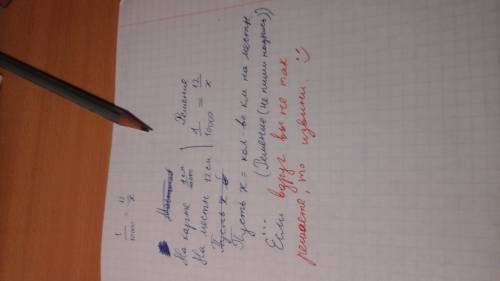 1/10000 = 12/x
Масштаб
На карте 1 см Решение
На местн 12 см 1/10000 = 12/x
Пусть x
Пусть x = кол-во км на местн
... (Решение (не пиши надпись))
Если вдруг вы не так
решаете, то извини. :)